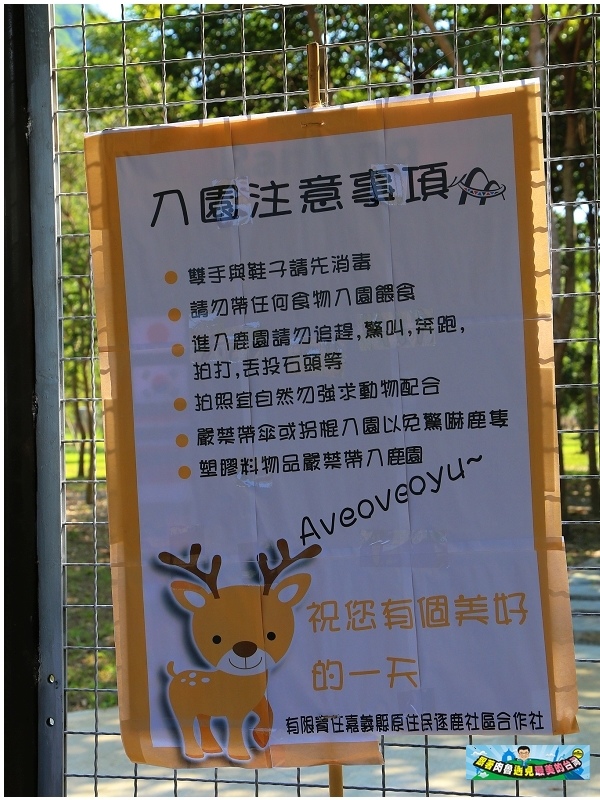 入園注意事項
雙手與鞋子請先消毒
請勿帶任何食物入園餵食
進入鹿園請勿追趕,驚叫,奔跑,
拍打,丟投石頭等
拍照宜自然勿強求動物配合
嚴禁帶傘或拐棍入園以免驚嚇鹿隻
塑膠料物品嚴禁帶入鹿園
Aveoveoyu~
祝您有個美好
的一天
有限責任嘉義縣原住民逐鹿社區合作社
跟著肉魯遇見最美的台灣